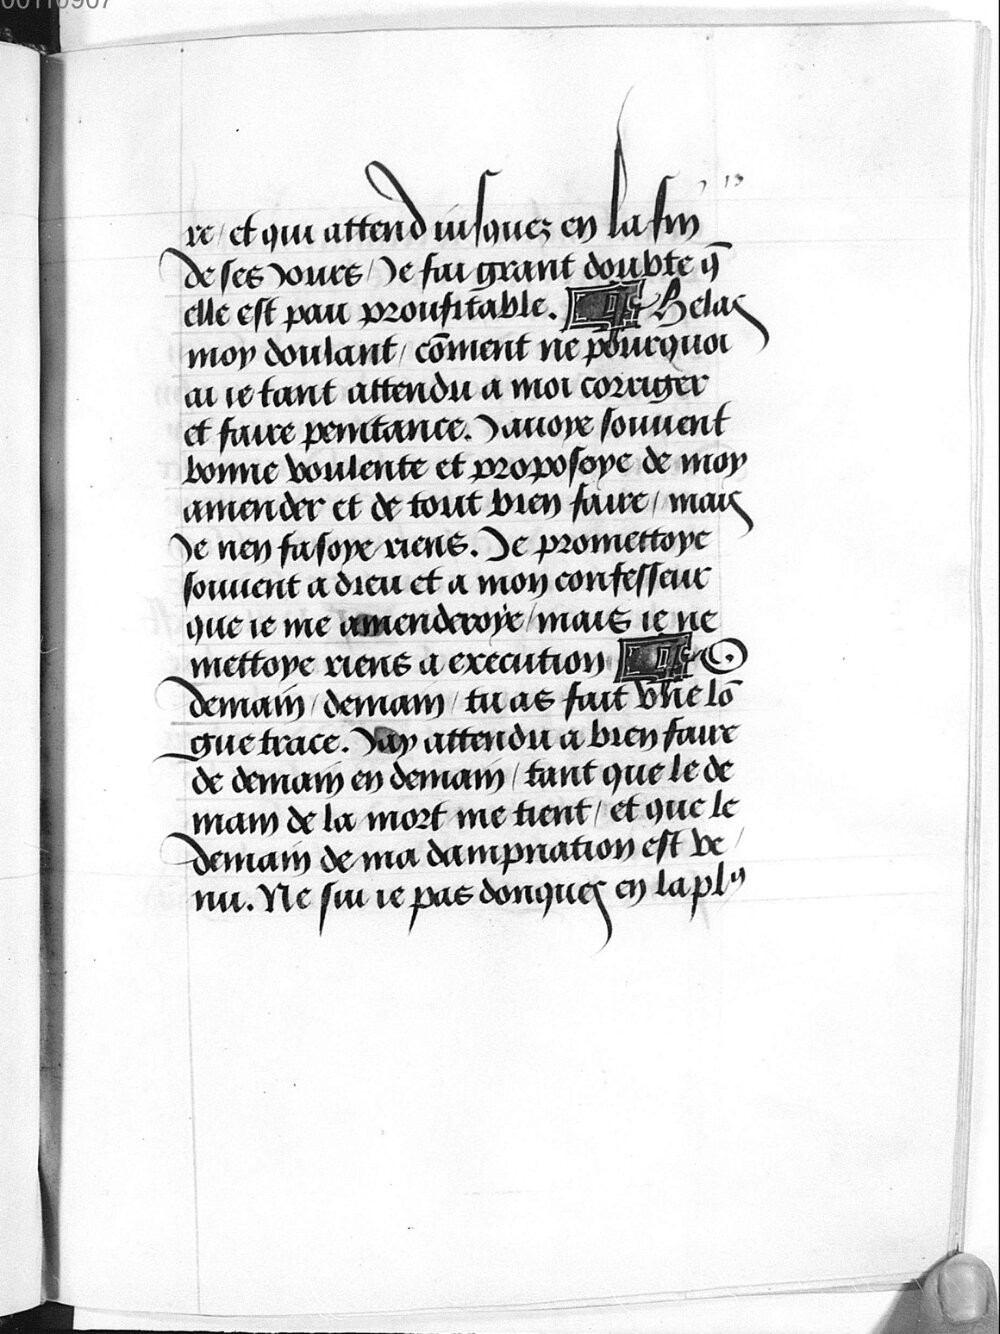 00110907
13
re / et qui attend iusquez en la fin
de ses Jours / Je fai grant doubte q̄
elle est pau proufitable. ¶ Helas
moy doulant / cōment ne pourquoi
ai ie tant attendu a moi corriger
et faire penitance. Jauoye souuent
bonne voulente et proposoye de moy
amender et de tout bien faire / mais
Je nen fasoye riens. Je promettoye
souuent a dieu et a mon confesseur
que ie me amenderoye / mais ie ne
mettoye riens a execution ¶ O
demain / demain / tu as fait vne lō
gue trace. Jay attendu a bien faire
de demain en demain / tant que le de
main de la mort me tient / et que le
demain de ma dampnation est ve /
nu. Ne sui ie pas donques en la plꝰ